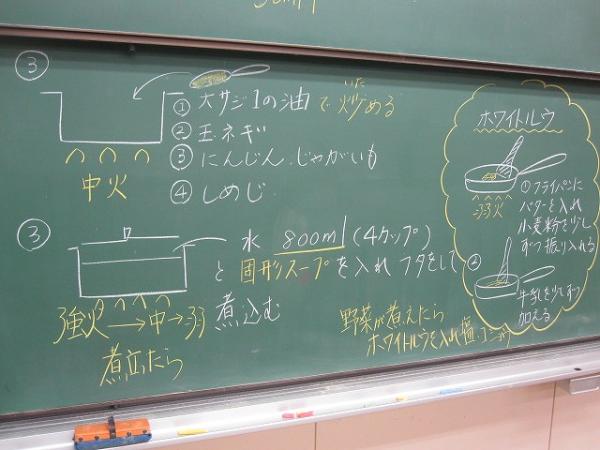 ③
①大サジ1の油で炒める
いた
②玉ネギ
③にんじん、じゃがいも
④しめじ
中火
③
水 800ml (4カップ)
と固形スープを入れフタをして
煮込む
強火→中→弱
煮立たら
野菜が煮えたら
ホワイトルウを入れ塩、コショウ
ホワイトルウ
①フライパンに
バターを入れ
小麦粉を少し
ずつ振り入れる
弱火
②
牛乳を少しずつ
加える